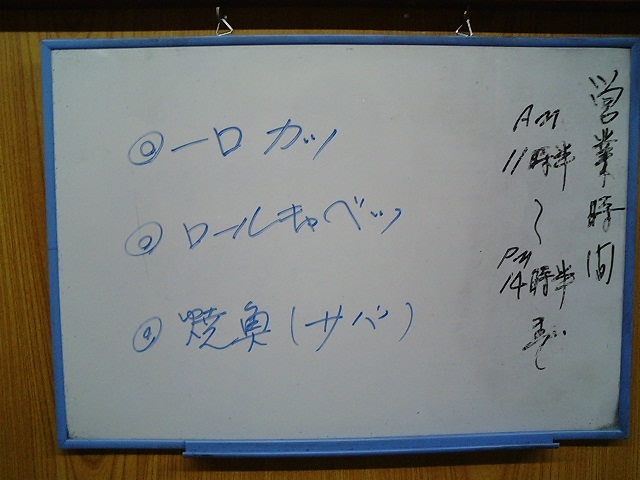 一口カツ
ロールキャベツ
焼魚(サバ)
営業時間
AM
11時半
~
PM
14時半
まで